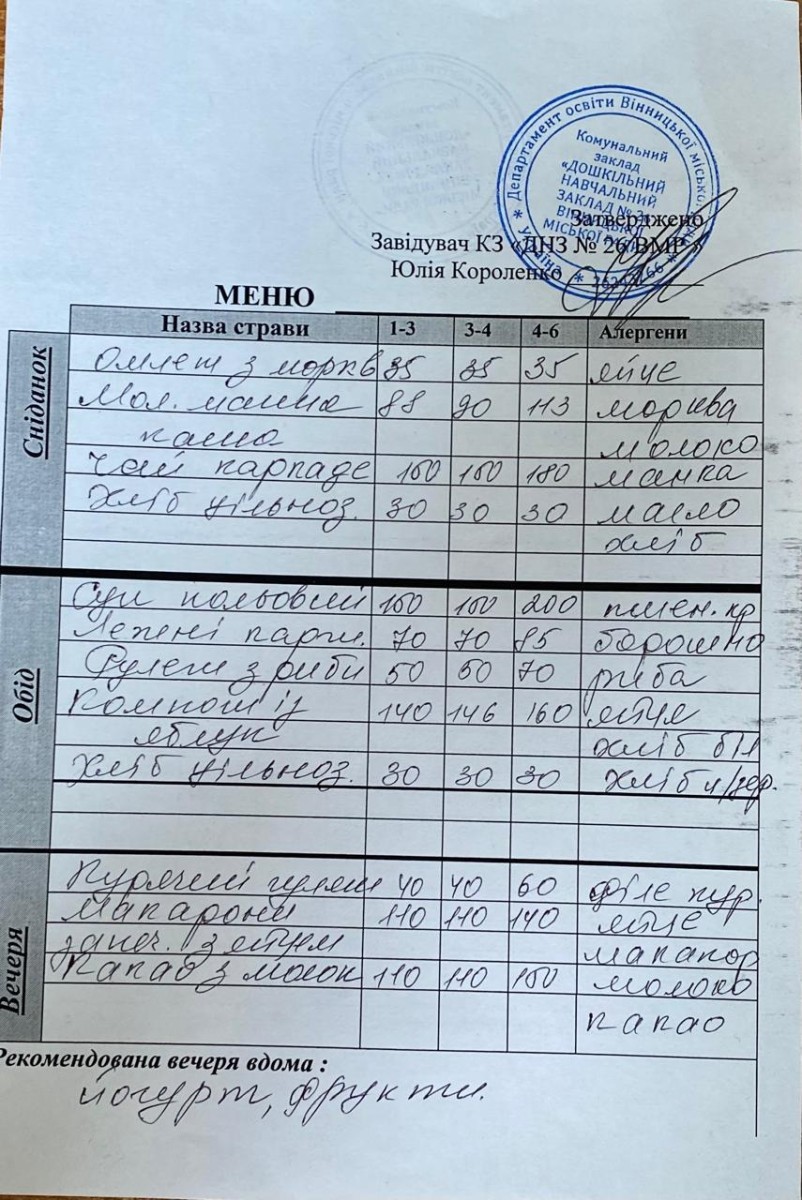 Департамент освіти Вінницької міської
Комунальний
заклад
«ДОШКІЛЬНИЙ
НАВЧАЛЬНИЙ
ЗАКЛАД № 26
ВІННИЦЬКОЇ
МІСЬКОЇ РАДИ»
Україна
Затверджено
Завідувач КЗ «ДНЗ № 26 ВМР»
Юлія Короленко
МЕНЮ
Назва страви 1-3 3-4 4-6 Алергени
Сніданок
Омлет з моркв 35 35 35 яйце
Мол. манна 88 90 113 морква
каша молоко
Чай каркаде 150 150 180 манка
Хліб цільноз. 30 30 30 масло
хліб
Обід
Суп польовий 150 150 200 пшен. кр
Лежені карт. 70 70 85 борошно
Рулет з риби 50 50 70 риба
Компот із 140 146 160 яйце
яблук хліб біл
Хліб цільноз. 30 30 30 хліб ц/зер.
Вечеря
Курячий гуляш 40 40 60 філе кур.
Макарони 110 110 140 яйце
запеч. з яйцем макарон
Какао з молок 110 110 150 молоко
какао
Рекомендована вечеря вдома :
йогурт, фрукти.